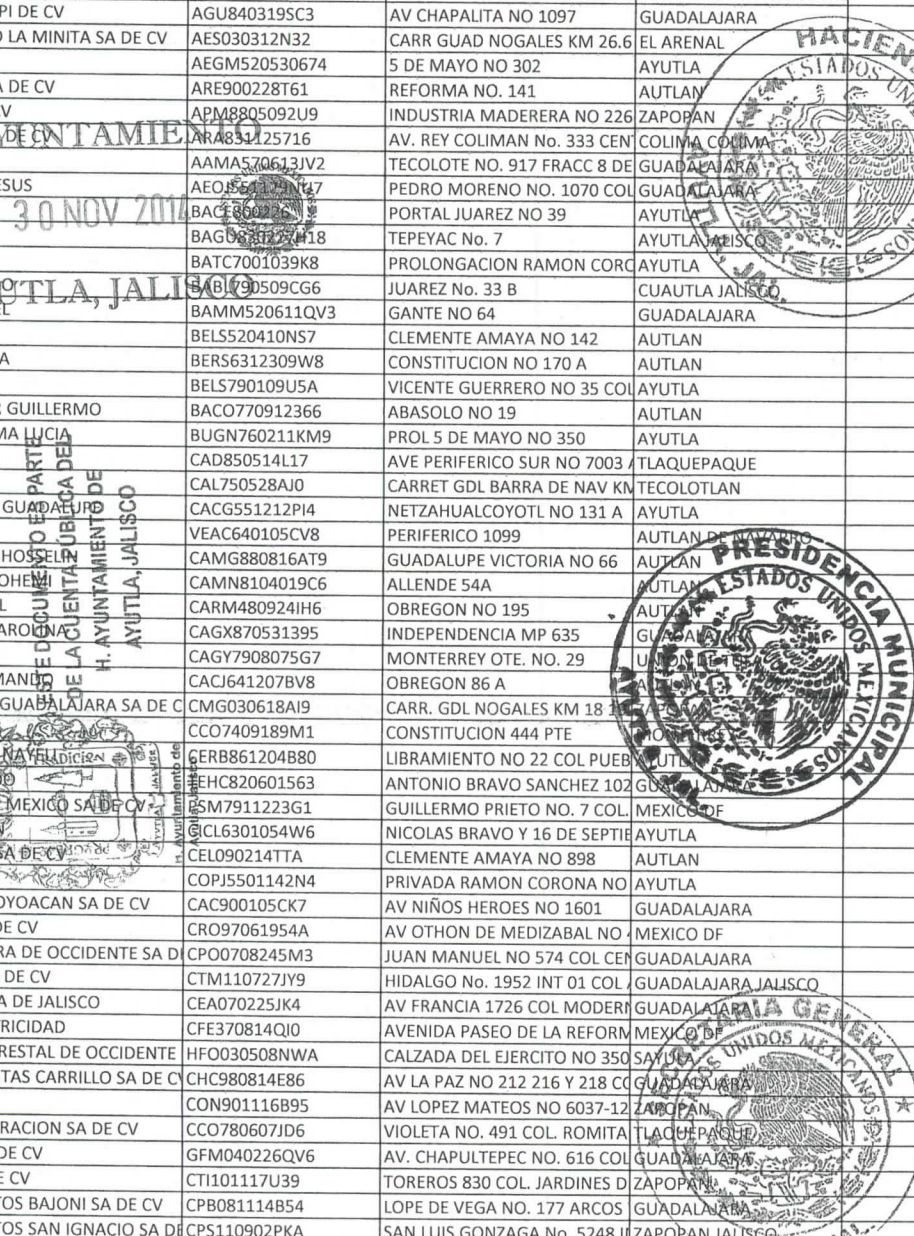 PI DE CV AGU840319SC3 AV CHAPALITA NO 1097 GUADALAJARA
O LA MINITA SA DE CV AES030312N32 CARR GUAD NOGALES KM 26.6 EL ARENAL
AEGM520530674 5 DE MAYO NO 302 AYUTLA
A DE CV ARE900228T61 REFORMA NO. 141 AUTLAN
V APM8805092U9 INDUSTRIA MADERERA NO 226 ZAPOPAN
DE CV ARA831125716 AV. REY COLIMAN No. 333 CENT COLIMA COLIMA
AAMA570613JV2 TECOLOTE NO. 917 FRACC 8 DE GUADALAJARA
ESUS AEOJ551129NU7 PEDRO MORENO NO. 1070 COL GUADALAJARA
30 NOV 2014
PORTAL JUAREZ NO 39 AYUTLA
BAGU830227H18 TEPEYAC No. 7 AYUTLA JALISCO
BATC7001039K8 PROLONGACION RAMON CORO AYUTLA
UTLA, JALISCO
790509CG6 JUAREZ No. 33 B CUAUTLA JALISCO
L BAMM520611QV3 GANTE NO 64 GUADALAJARA
BELS520410NS7 CLEMENTE AMAYA NO 142 AUTLAN
A BERS6312309W8 CONSTITUCION NO 170 A AUTLAN
BELS790109U5A VICENTE GUERRERO NO 35 COL AYUTLA
R GUILLERMO BACO770912366 ABASOLO NO 19 AUTLAN
MA LUCIA BUGN760211KM9 PROL 5 DE MAYO NO 350 AYUTLA
CAD850514L17 AVE PERIFERICO SUR NO 7003 TLAQUEPAQUE
CAL750528AJ0 CARRET GDL BARRA DE NAV KM TECOLOTLAN
GUADALUPE CACG551212PI4 NETZAHUALCOYOTL NO 131 A AYUTLA
VEAC640105CV8 PERIFERICO 1099 AUTLAN DE NAVARRO
HOSSELIN CAMG880816AT9 GUADALUPE VICTORIA NO 66 AUTLAN
OHEMI CAMN8104019C6 ALLENDE 54A AUTLAN
L CARM480924IH6 OBREGON NO 195 AUTLAN
AROLINA CAGX870531395 INDEPENDENCIA MP 635 GUADALAJARA
CAGY7908075G7 MONTERREY OTE. NO. 29 UNION DE TULA
MANDO CACJ641207BV8 OBREGON 86 A
GUADALAJARA SA DE C CMG030618AI9 CARR. GDL NOGALES KM 18 ZAPOPAN
CCO7409189M1 CONSTITUCION 444 PTE MONTERREY
NAYELI CERB861204B80 LIBRAMIENTO NO 22 COL PUEB AYUTLA
DO EEHC820601563 ANTONIO BRAVO SANCHEZ 102 GUADALAJARA
MEXICO SA DE CV PSM7911223G1 GUILLERMO PRIETO NO. 7 COL. MEXICO DF
CICL6301054W6 NICOLAS BRAVO Y 16 DE SEPTIE AYUTLA
SA DE CV CEL090214TTA CLEMENTE AMAYA NO 898 AUTLAN
COPJ5501142N4 PRIVADA RAMON CORONA NO AYUTLA
OYOACAN SA DE CV CAC900105CK7 AV NIÑOS HEROES NO 1601 GUADALAJARA
DE CV CRO97061954A AV OTHON DE MEDIZABAL NO MEXICO DF
RA DE OCCIDENTE SA DE CPO0708245M3 JUAN MANUEL NO 574 COL CEN GUADALAJARA
DE CV CTM110727JY9 HIDALGO No. 1952 INT 01 COL GUADALAJARA JALISCO
A DE JALISCO CEA070225JK4 AV FRANCIA 1726 COL MODERN GUADALAJARA
TRICIDAD CFE370814QI0 AVENIDA PASEO DE LA REFORM MEXICO DF
RESTAL DE OCCIDENTE HFO030508NWA CALZADA DEL EJERCITO NO 350 SAYULA
TAS CARRILLO SA DE CV CHC980814E86 AV LA PAZ NO 212 216 Y 218 CO GUADALAJARA
CON901116B95 AV LOPEZ MATEOS NO 6037-12 ZAPOPAN
RACION SA DE CV CCO780607JD6 VIOLETA NO. 491 COL. ROMITA TLAQUEPAQUE
DE CV GFM040226QV6 AV. CHAPULTEPEC NO. 616 COL GUADALAJARA
E CV CTI101117U39 TOREROS 830 COL. JARDINES D ZAPOPAN
TOS BAJONI SA DE CV CPB081114B54 LOPE DE VEGA NO. 177 ARCOS GUADALAJARA
TOS SAN IGNACIO SA DE CPS110902PKA SAN LUIS GONZAGA No. 5248 ZAPOPAN JALISCO
YUNTAMIENTO
ESTE DOCUMENTO ES PARTE
DE LA CUENTA PUBLICA DEL
H. AYUNTAMIENTO DE
AYUTLA, JALISCO
H. Ayuntamiento de
Ayutla, Jalisco
HACIEN
ESTADOS UN
AYUTLA, JAL.
PRESIDENCIA MUNICIPAL
ESTADOS UNIDOS MEXICANOS
SECRETARIA GENERAL
UNIDOS MEXICANOS